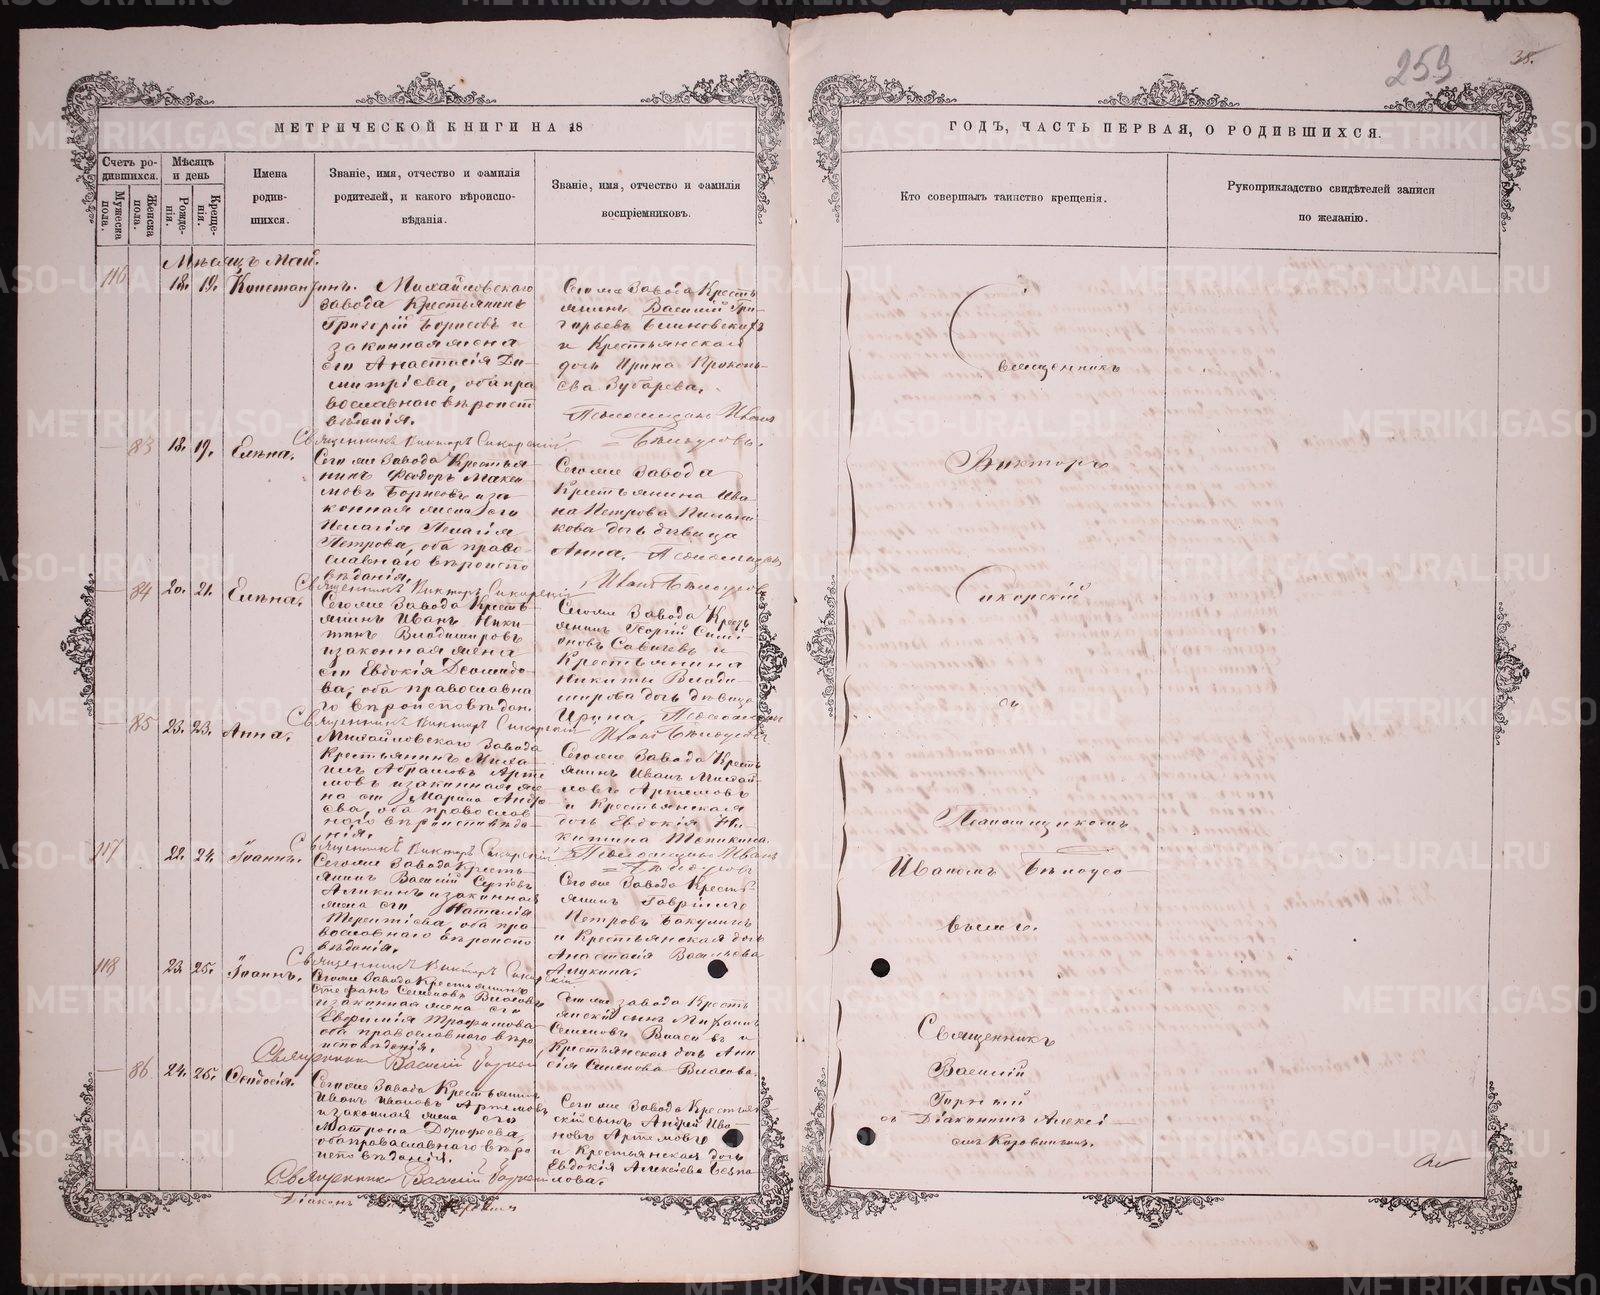 259
38.
МЕТРИЧЕСКОЙ КНИГИ НА 18
ГОДЪ, ЧАСТЬ ПЕРВАЯ, О РОДИВШИХСЯ.
Счетъ ро-
дившихся.
Мужеска пола.
Женска пола.
Мѣсяцъ
и день
Рожде-
нія.
Креще-
нія.
Имена
родив-
шихся.
Званіе, имя, отчество и фамилія
родителей, и какого вѣроиспо-
вѣданія.
Званіе, имя, отчество и фамилія
воспріемниковъ.
Кто совершалъ таинство крещенія.
Рукоприкладство свидѣтелей записи
по желанію.
Мѣсяцъ Май.
116 18. 19. Константинъ.
Михайловскаго
завода Крестьянинъ
Григорій Борисовъ и
законная жена
его Анастасія Ди-
митріева, оба пра
вославнаго вѣроисп
вѣданія.
Сего же завода Кресть
янинъ Василій Гри-
горьевъ
и Крестьянская
дочь Ирина Прокопь-
ева Зубарева.
Священникъ Викторъ Сикорскій
Псаломщикъ Иванъ
Бѣлоусовъ.
83 18. 19. Елена.
Сего же завода Крестья
нинъ Ѳеодоръ Макси
мовъ Борисовъ и за-
конная жена его
Пелагія Пелагія
Петрова, оба право-
славнаго вѣроиспо
вѣданія.
Сего же завода
Крестьянина Ива-
на Петрова
кова дочь дѣвица
Анна. Псаломщикъ
Иванъ Бѣлоусовъ
Священникъ Викторъ Сикорскій
84 20. 21. Елена.
Сего же завода Кресть
янинъ Иванъ Ники
тинъ Владимировъ
и законная жена
его Евдокія Деомидо-
ва, оба православна
го вѣроисповѣдан.
Сего же завода Крест
янинъ Георгій Симе
оновъ Савичевъ и
Крестьянина
Никиты Влади-
мірова дочь дѣвица
Ирина. Псаломщик
Иванъ Бѣлоусовъ
Священникъ Викторъ Сикорскій
85 23. 23. Анна.
Михайловскаго завода
Крестьянинъ Миха-
илъ Абрамовъ Арте
мовъ и законная же
на его Марина Андре
ева, оба православ
наго вѣроисповѣда-
нія.
Сего же завода Кресть
янинъ Иванъ Михай-
ловъ Артемовъ
и Крестьянская
дочь Евдокія Ни-
китина Топикина.
Священникъ Викторъ Сикорскій
Псаломщикъ Иванъ
Бѣлоусовъ
117 22. 24. Іоаннъ.
Сего же завода Кресть-
янинъ Василій Сергѣевъ
Аликинъ и законная
жена его Наталія
Терентіева, оба пра-
вославнаго вѣроиспо
вѣданія.
Сего же завода Кресть-
янинъ Гавріилъ
Петровъ Бакулинъ
и Крестьянская дочь
Анастасія Васильева
Аликина.
Священникъ Викторъ Сикорскій
118 23. 25. Іоаннъ.
Сего же завода Крестьянинъ
Стефанъ Семеновъ Власовъ
и законная жена его
Евфимія Трофимова
оба православнаго вѣро
исповѣданія.
Сего же завода Кресть
янскій сынъ Михаилъ
Семеновъ Власовъ и
Крестьянская дочь Ани
сія Симонова Власова.
Священникъ Василій
86 24. 25. Ѳеодосія.
Сего же завода Крестьянинъ
Иванъ Ивановъ Артемовъ
и законная жена его
Матрона Дорофеева,
оба православнаго вѣро
исповѣданія.
Сего же завода Крестьян
скій сынъ Андрей Ива
новъ Артемовъ
и Крестьянская дочь
Евдокія Алексіева Безпа
лова.
Священникъ Василій
Діаконъ
Священникъ
Викторъ
Сикорскій
съ
Псаломщикомъ
Иваномъ Бѣлоусо-
вымъ.
Священникъ
Василій
съ Діакономъ Алексі-
емъ